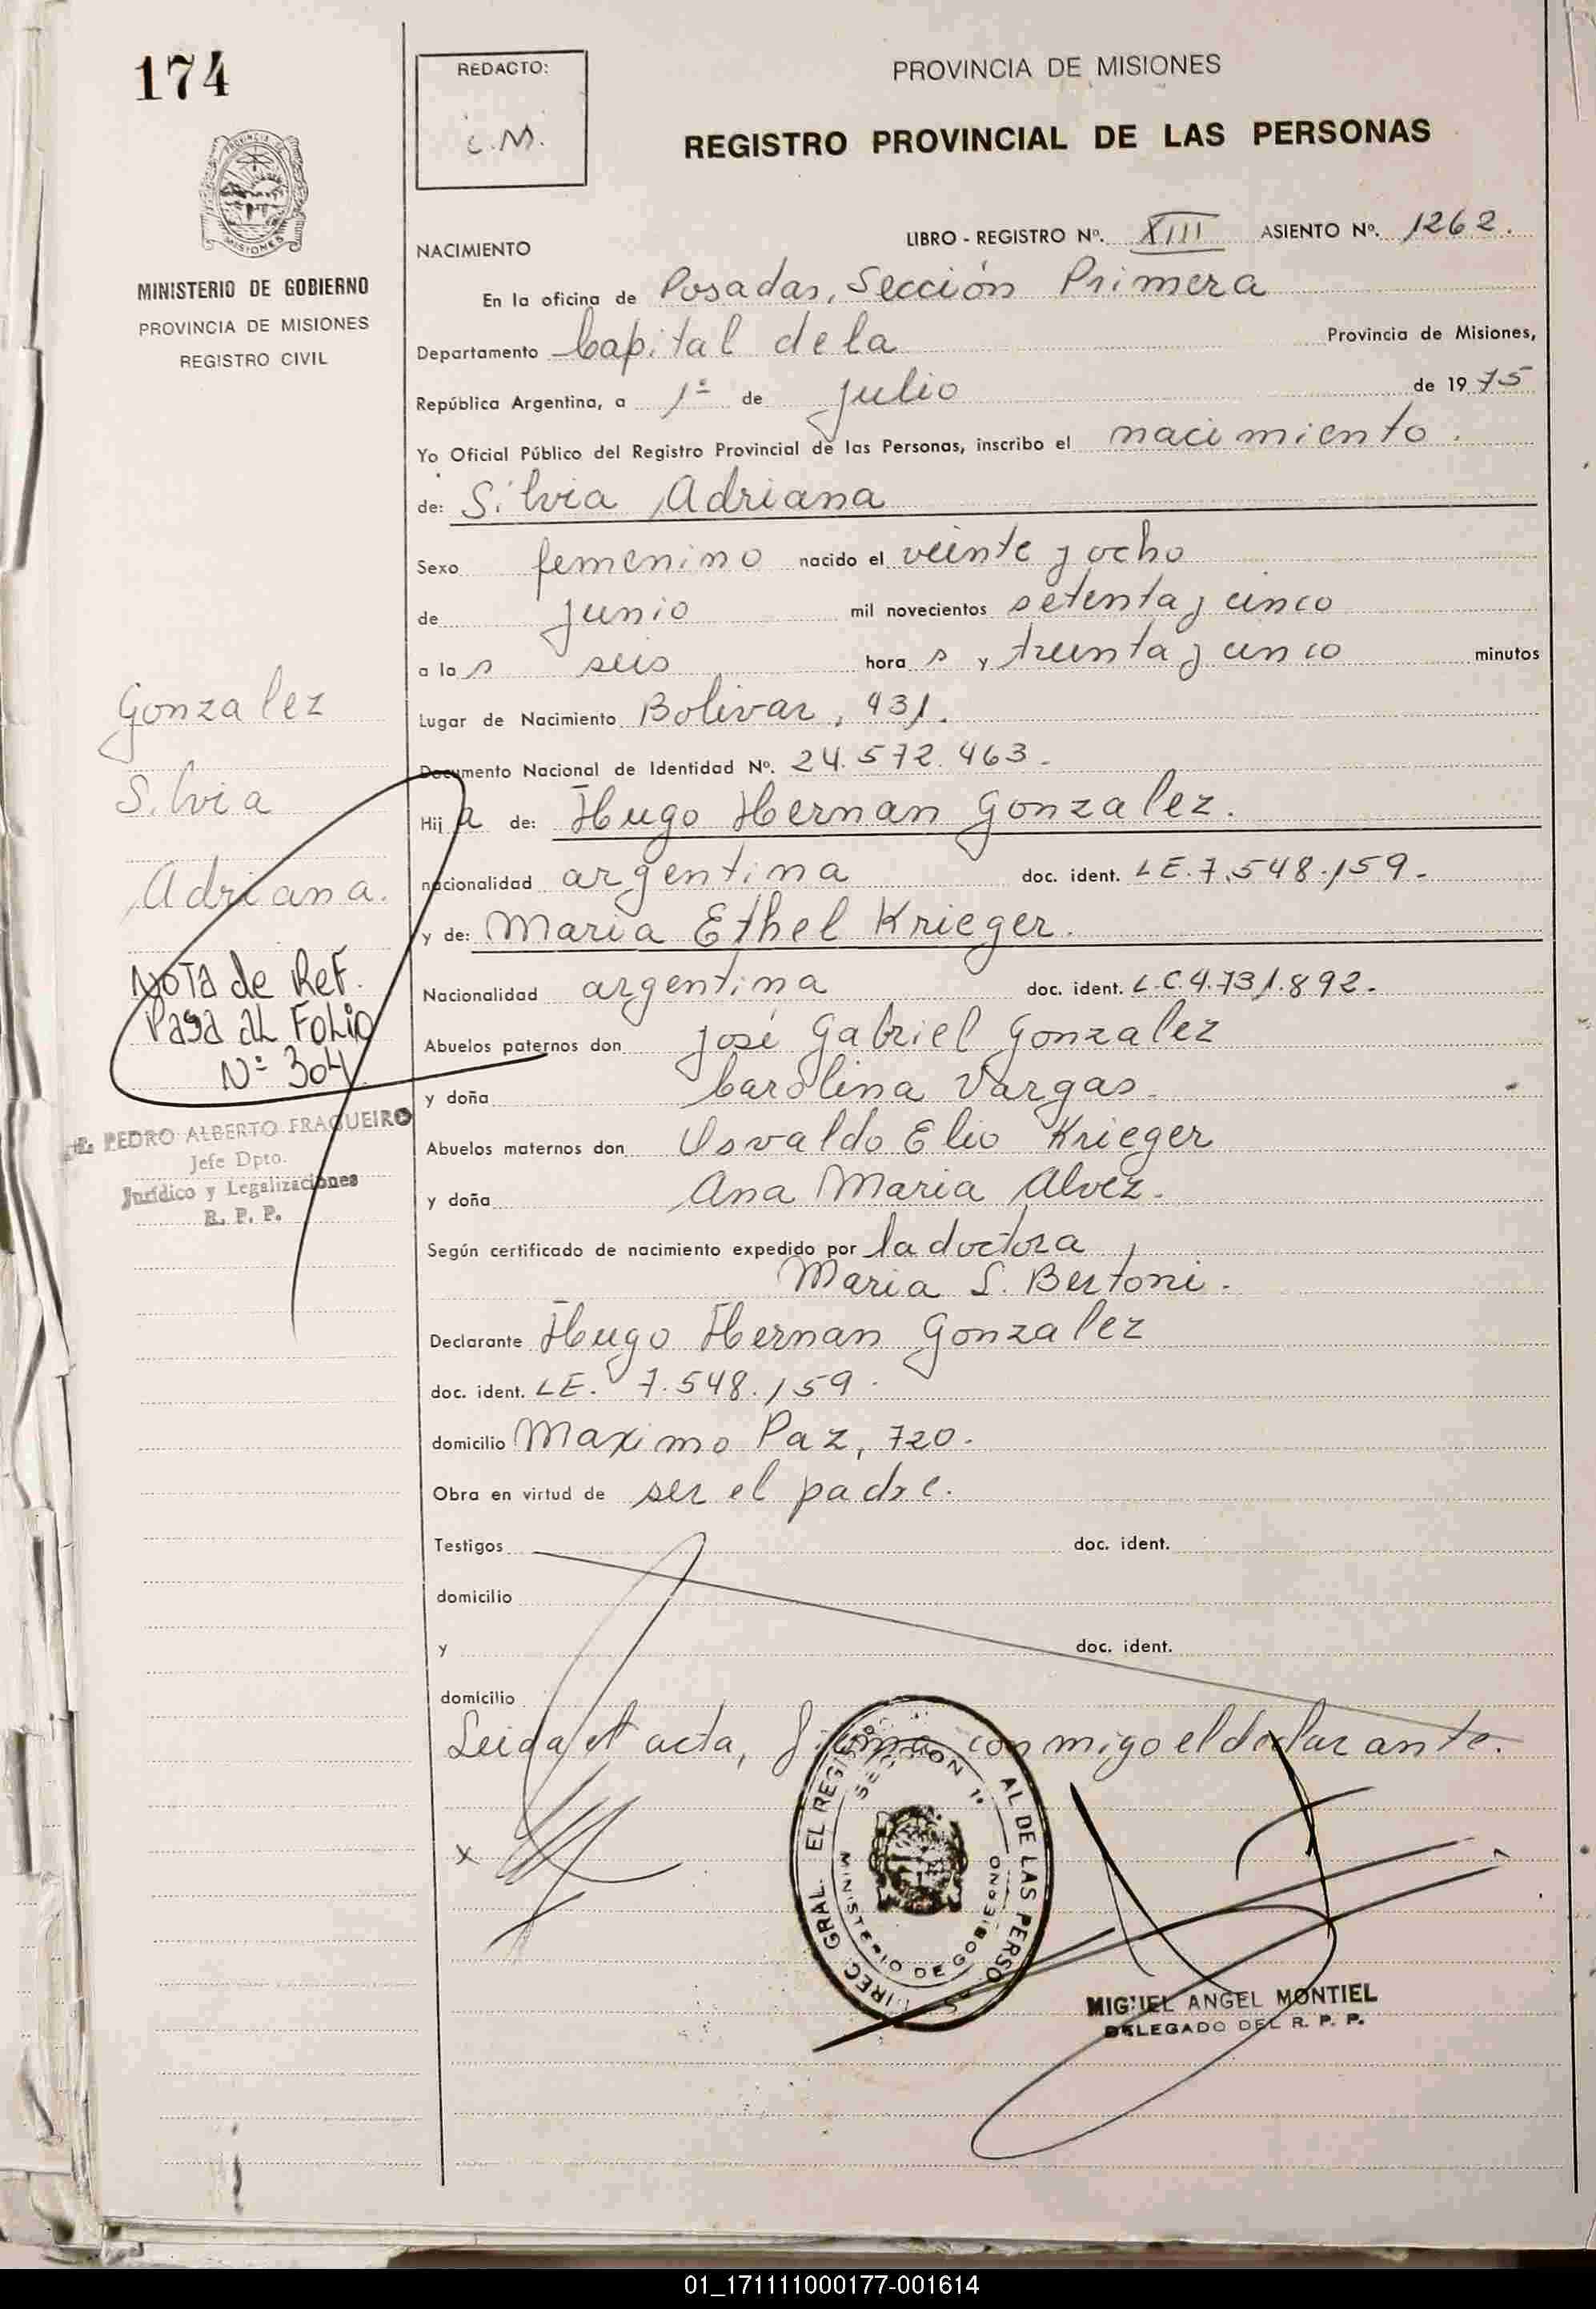 174
MINISTERIO DE GOBIERNO
PROVINCIA DE MISIONES
REGISTRO CIVIL
REDACTO:
C.M.
PROVINCIA DE MISIONES
REGISTRO PROVINCIAL DE LAS PERSONAS
NACIMIENTO
LIBRO - REGISTRO Nº. XIII ASIENTO Nº. 1262.
En la oficina de Posadas, Sección Primera
Departamento Capital de la Provincia de Misiones,
República Argentina, a 1º de Julio de 1975
Yo Oficial Público del Registro Provincial de las Personas, inscribo el nacimiento.
de: Silvia Adriana
Sexo femenino nacido el veinte y ocho
de junio mil novecientos setenta y cinco
a la s seis hora s y treinta y cinco minutos
Lugar de Nacimiento Bolivar, 931.
Documento Nacional de Identidad Nº. 24.572.463.
Hij a de: Hugo Hernan Gonzalez.
nacionalidad argentina doc. ident. LE.7.548.159.
y de: Maria Ethel Krieger.
Nacionalidad argentina doc. ident. L.C.4.731.892.
Abuelos paternos don José Gabriel Gonzalez
y doña Carolina Vargas.
Abuelos maternos don Osvaldo Elio Krieger
y doña Ana Maria Alvez.
Según certificado de nacimiento expedido por la doctora
Maria S. Bertoni.
Declarante Hugo Hernan Gonzalez
doc. ident. LE. 7.548.159.
domicilio Maximo Paz, 720.
Obra en virtud de ser el padre.
Testigos doc. ident.
domicilio
y doc. ident.
domicilio
Leida el acta, firma conmigo el declarante.
x
MIGUEL ANGEL MONTIEL
DELEGADO DEL R. P. P.
Gonzalez
Silvia
Adriana.
NOTA de Ref.
Pasa al Folio
Nº 304
PEDRO ALBERTO FRAQUEIRO
Jefe Dpto.
Jurídico y Legalizaciones
R. P. P.
SECCION 1ª
MINISTERIO DE GOBIERNO
01_171111000177-001614